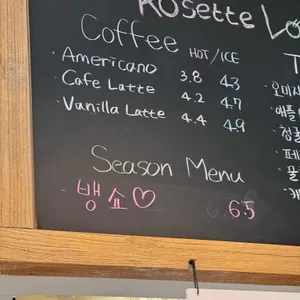 Rosette
Coffee HOT/ICE
· Americano 3.8 4.3
· Cafe Latte 4.2 4.7
· Vanilla Latte 4.4 4.9
Season Menu
· 뱅쇼♡ 6.5